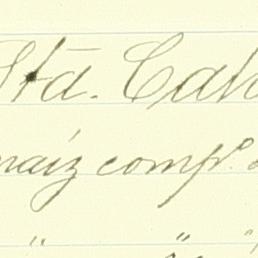 Sta. Cat
maiz comp.
" "